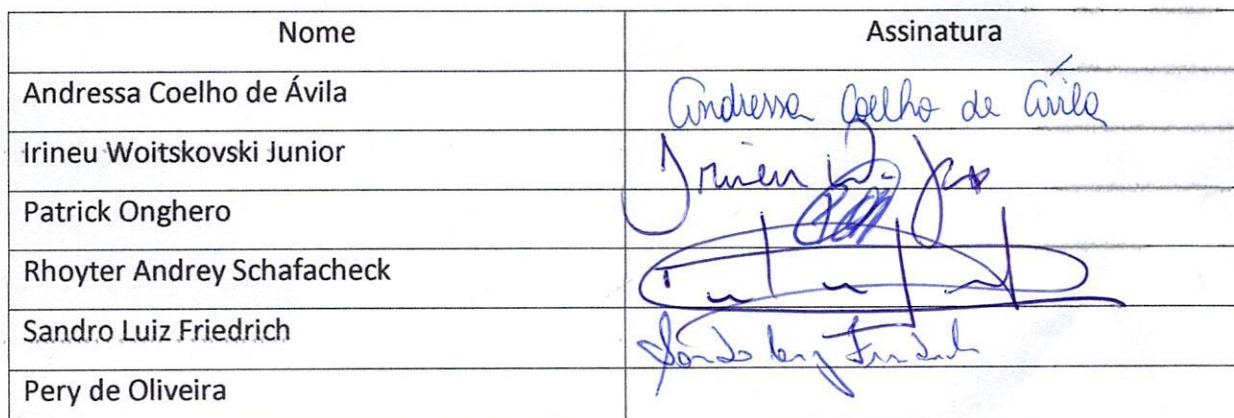 Nome Assinatura
Andressa Coelho de Ávila Andressa Coelho de Ávila
Irineu Woitskovski Junior Irineu W. Jr
Patrick Onghero
Rhoyter Andrey Schafacheck
Sandro Luiz Friedrich Sandro Luiz Friedrich
Pery de Oliveira